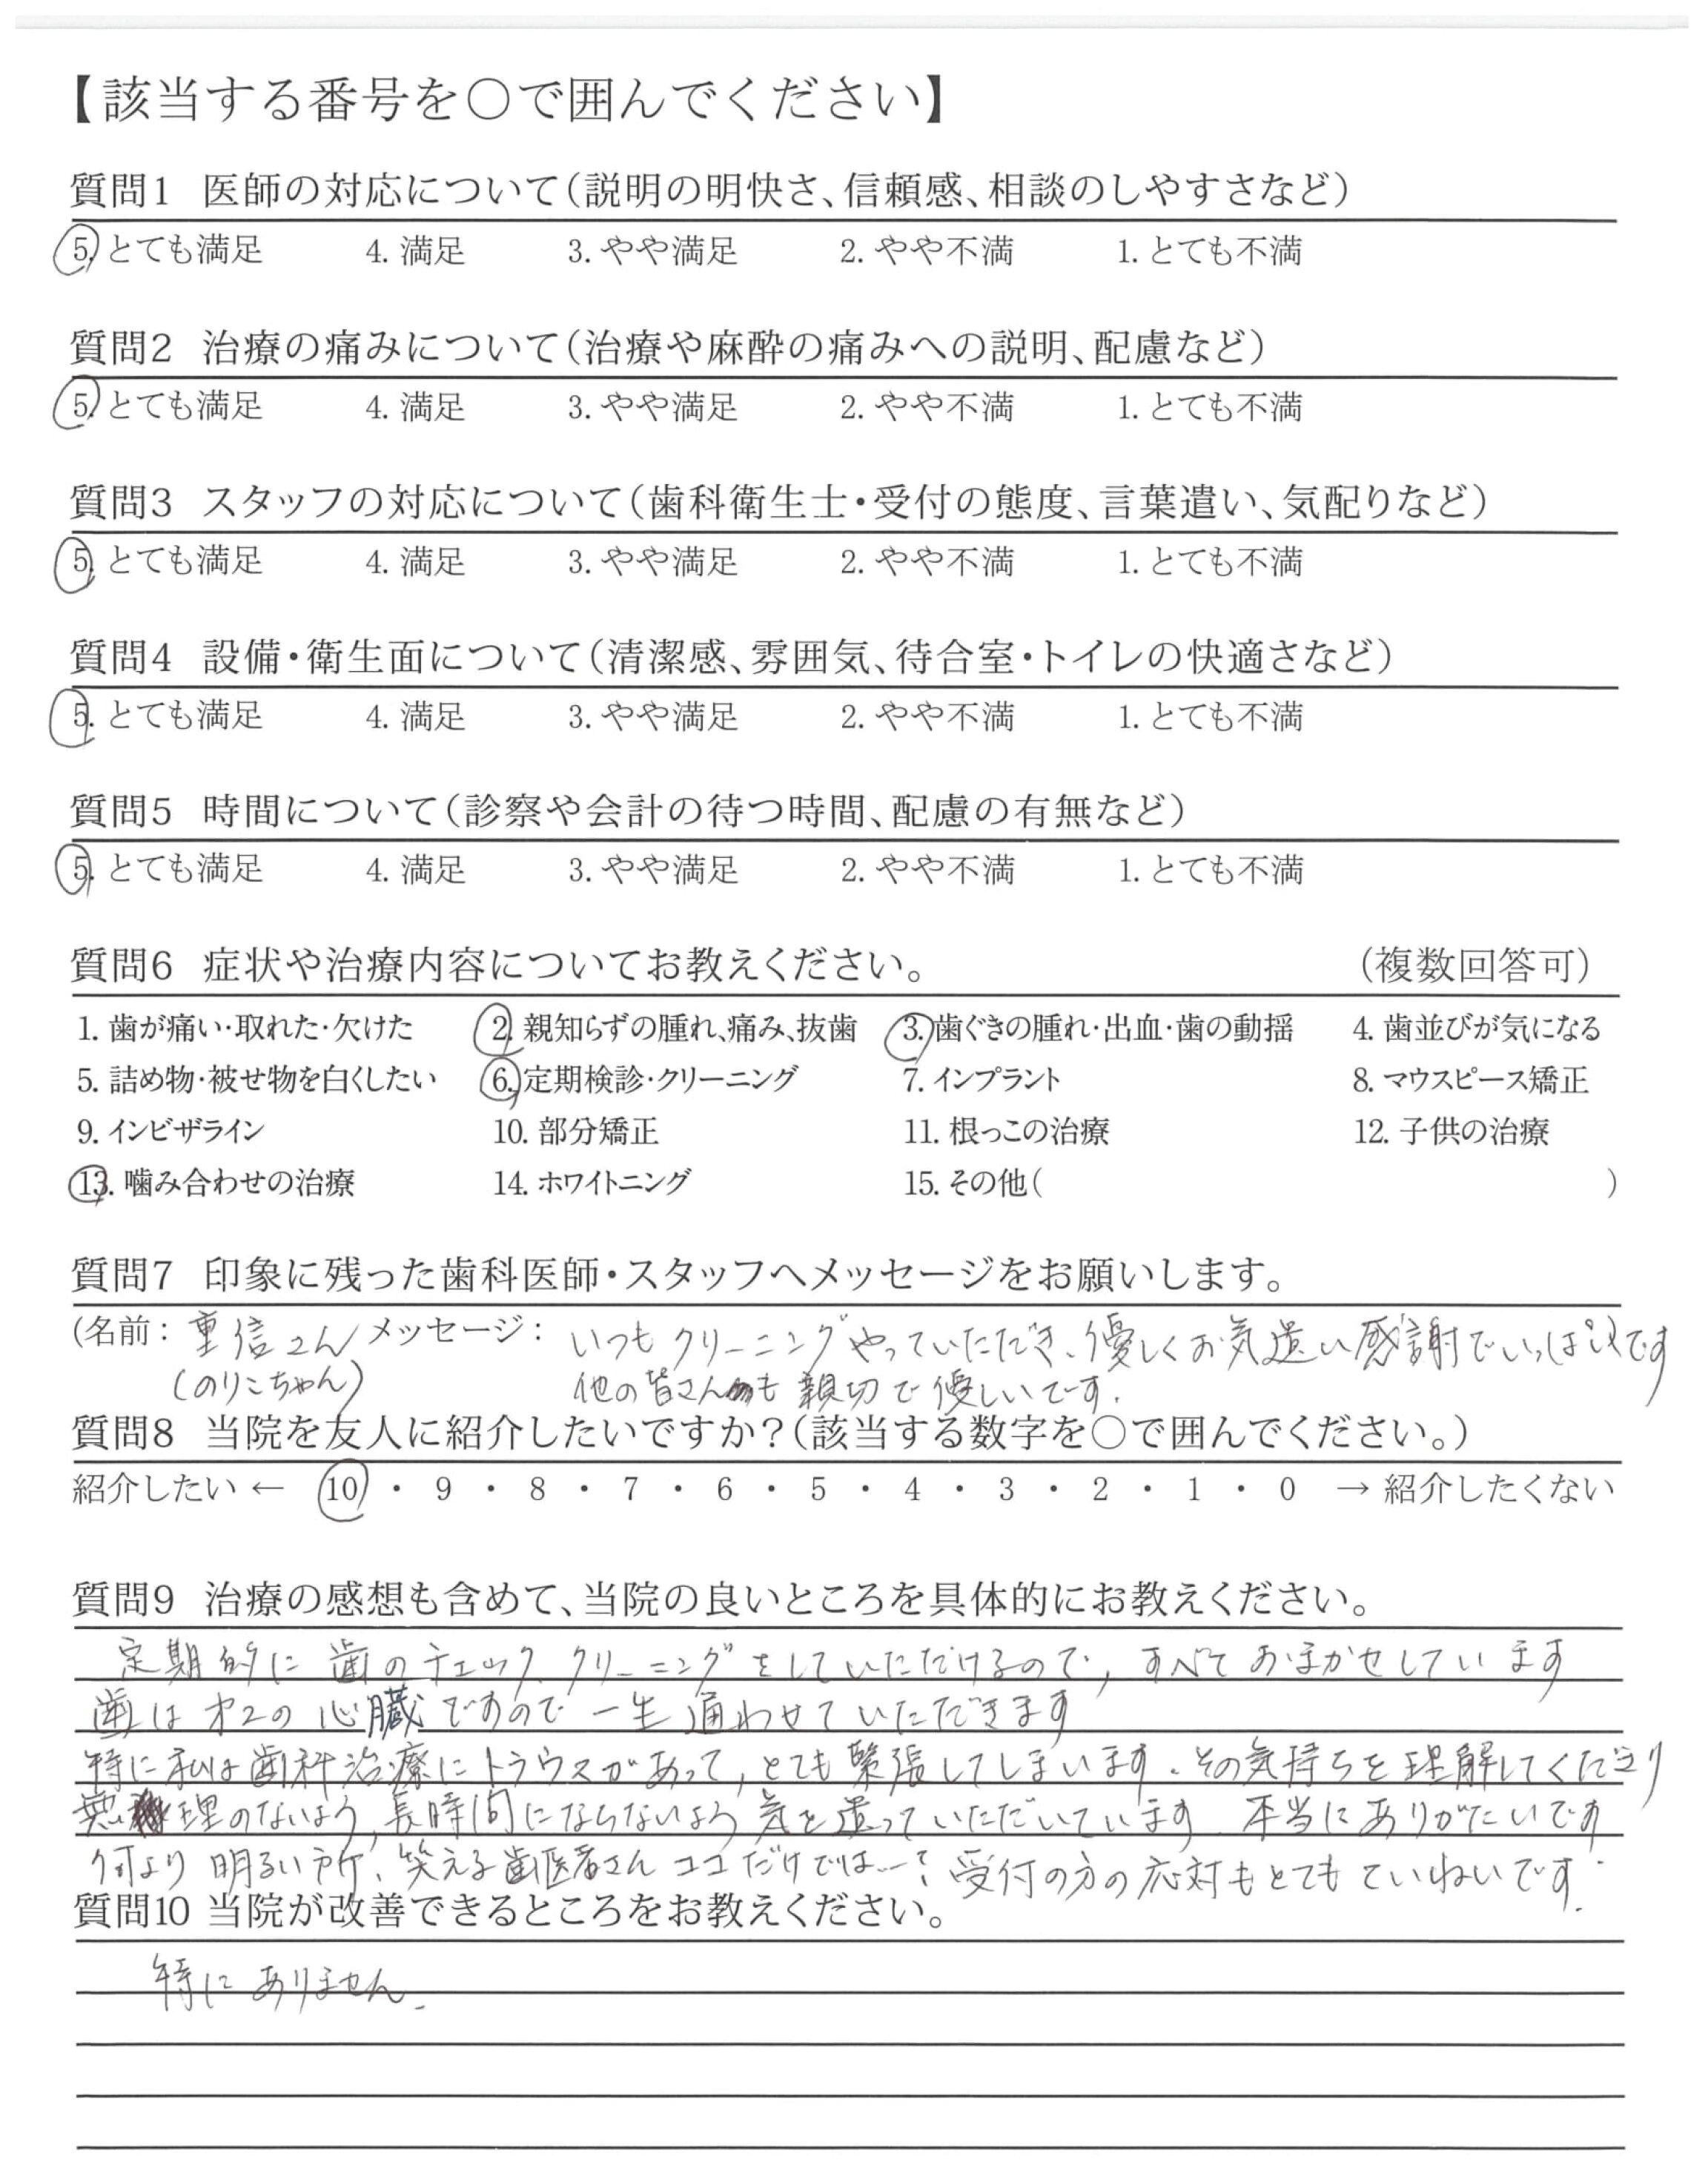 【該当する番号を〇で囲んでください】
質問1 医師の対応について(説明の明快さ、信頼感、相談のしやすさなど)
5. とても満足 4. 満足 3. やや満足 2. やや不満 1. とても不満
質問2 治療の痛みについて(治療や麻酔の痛みへの説明、配慮など)
5. とても満足 4. 満足 3. やや満足 2. やや不満 1. とても不満
質問3 スタッフの対応について(歯科衛生士・受付の態度、言葉遣い、気配りなど)
5. とても満足 4. 満足 3. やや満足 2. やや不満 1. とても不満
質問4 設備・衛生面について(清潔感、雰囲気、待合室・トイレの快適さなど)
5. とても満足 4. 満足 3. やや満足 2. やや不満 1. とても不満
質問5 時間について(診察や会計の待つ時間、配慮の有無など)
5. とても満足 4. 満足 3. やや満足 2. やや不満 1. とても不満
質問6 症状や治療内容についてお教えください。 (複数回答可)
1. 歯が痛い・取れた・欠けた 2. 親知らずの腫れ、痛み、抜歯 3. 歯ぐきの腫れ・出血・歯の動揺 4. 歯並びが気になる
5. 詰め物・被せ物を白くしたい 6. 定期検診・クリーニング 7. インプラント 8. マウスピース矯正
9. インビザライン 10. 部分矯正 11. 根っこの治療 12. 子供の治療
13. 噛み合わせの治療 14. ホワイトニング 15. その他( )
質問7 印象に残った歯科医師・スタッフへメッセージをお願いします。
(名前: 重信さん メッセージ: いつもクリーニングやっていただき、優しくお気遣い感謝でいっぱいです
(のりこちゃん) 他の皆さんも親切で優しいです.
質問8 当院を友人に紹介したいですか?(該当する数字を〇で囲んでください。)
紹介したい ← 10 ・ 9 ・ 8 ・ 7 ・ 6 ・ 5 ・ 4 ・ 3 ・ 2 ・ 1 ・ 0 → 紹介したくない
質問9 治療の感想も含めて、当院の良いところを具体的にお教えください。
定期的に歯のチェック、クリーニングをしていただけるので, すべておまかせしています
歯は才2の心臓ですので一生通わせていただきます
特に私は歯科治療にトラウマがあって, とても緊張してしまいます. その気持ちを理解してくださり
無理のないよう, 長時間にならないよう気を遣っていただいています 本当にありがたいです
何より明るい所、笑える歯医者さんココだけでは…? 受付の方の応対もとてもていねいです.
質問10 当院が改善できるところをお教えください。
特にありません.